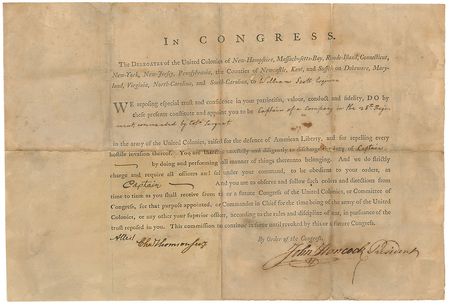 IN CONGRESS.
The DELEGATES of the United Colonies of New-Hampshire, Massachusetts-Bay, Rhode-Island, Connecticut,
New-York, New-Jersey, Pennsylvania, the Counties of Newcastle, Kent, and Sussex on Delaware, Mary-
land, Virginia, North-Carolina, and South-Carolina, to William Scott Esquire
WE reposing especial trust and confidence in your patriotism, valour, conduct and fidelity, DO by
these presents constitute and appoint you to be Captain of a Company in the Regi-
ment commanded by Colo Sargent
in the army of the United Colonies, raised for the defence of American Liberty, and for repelling every
hostile invasion thereof. You are therefore carefully and diligently to discharge the duty of Captain
by doing and performing all manner of things thereunto belonging. And we do strictly
charge and require all officers and soldiers under your command, to be obedient to your orders, as
Captain And you are to observe and follow such orders and directions from
time to time as you shall receive from this or a future Congress of the United Colonies, or Committee of
Congress, for that purpose appointed, or Commander in Chief for the time being of the army of the United
Colonies, or any other your superior officer, according to the rules and discipline of war, in pursuance of the
trust reposed in you. This commission to continue in force until revoked by this or a future Congress.
By Order of the Congress,
Attest Cha Thomson secy
John Hancock President